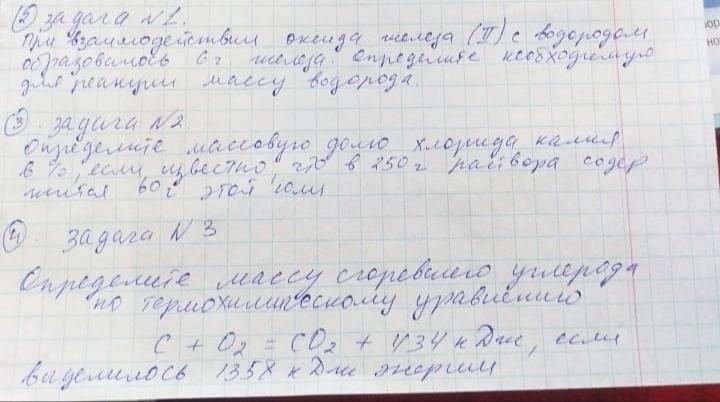 ② задача №1.
При взаимодействии оксида железа (II) с водородом
образовалось 6 г. железа. Определите необходимую
для реакции массу водорода.
③. задача №2.
Определите массовую долю хлорида калия
в %, если известно, что в 250 г раствора содер
жится 60 г этой соли
④. Задача №3
Определите массу сгоревшего углерода
по термохимическому уравнению
C + O2 = CO2 + 434 кДж, если
выделилось 1358 кДж энергии